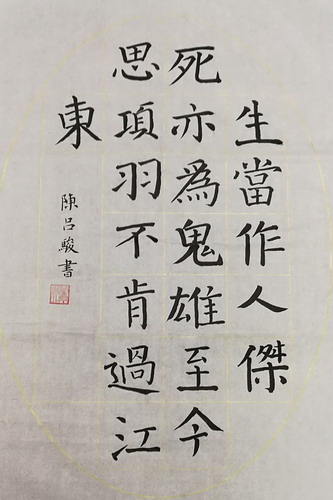 生當作人傑
死亦為鬼雄至今
思項羽不肯過江
東
陳呂駿書